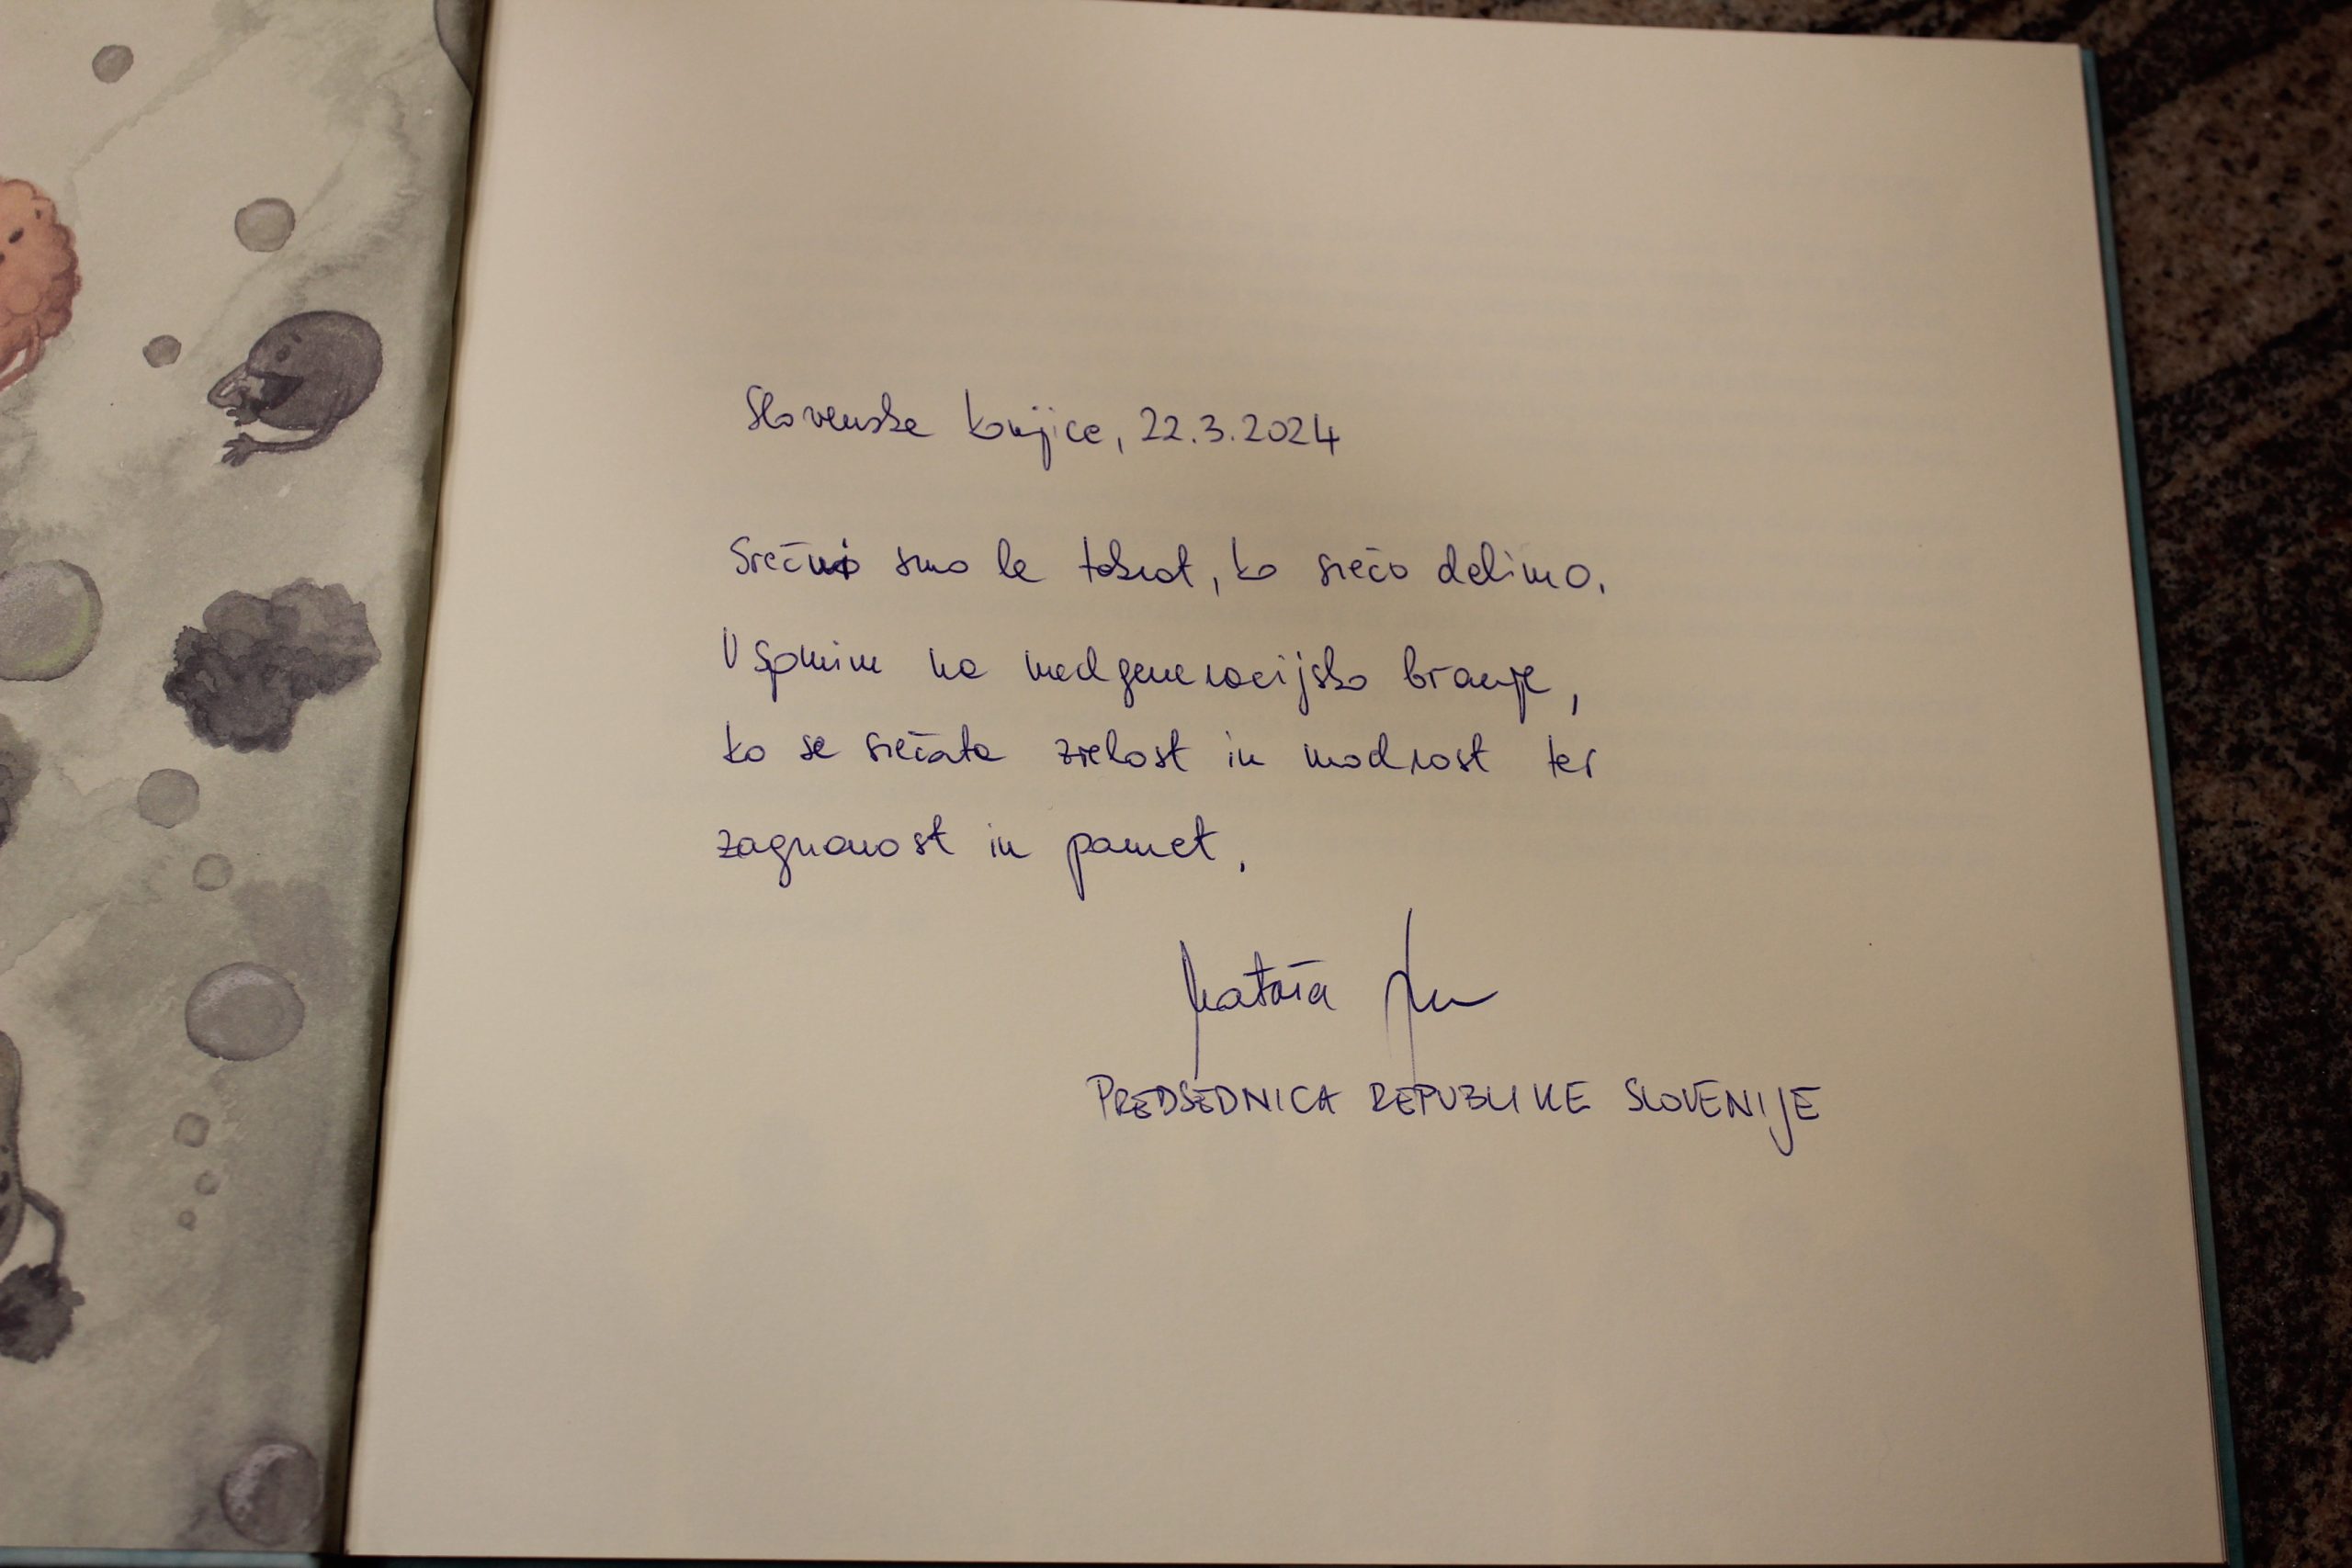 Slovenske Konjice, 22.3.2024
Srečni smo le takrat, ko srečo delimo.
V spomin na medgeneracijsko branje,
ko se srečata zrelost in modrost ter
zagnanost in pamet.
Nataša
PREDSEDNICA REPUBLIKE SLOVENIJE